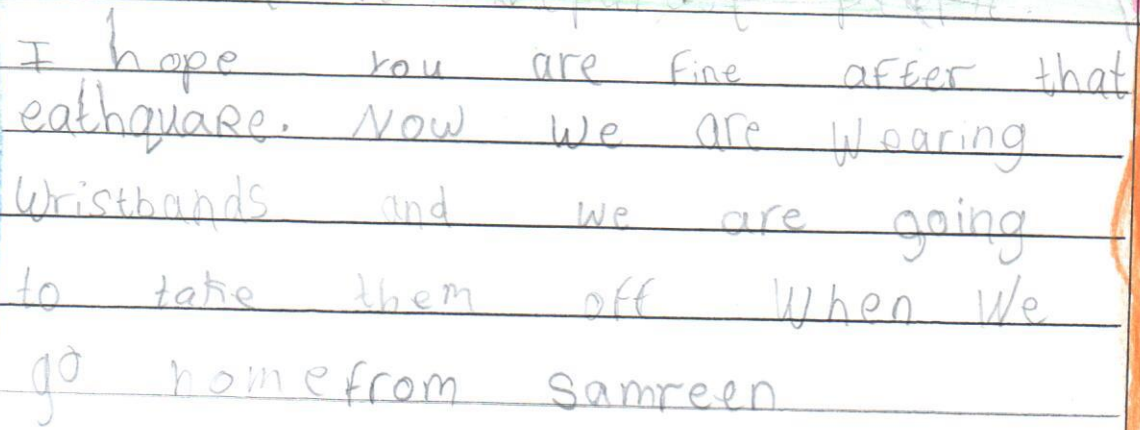 I hope you are fine after that
eathquake. Now we are wearing
wristbands and we are going
to take them off when we
go home from samreen